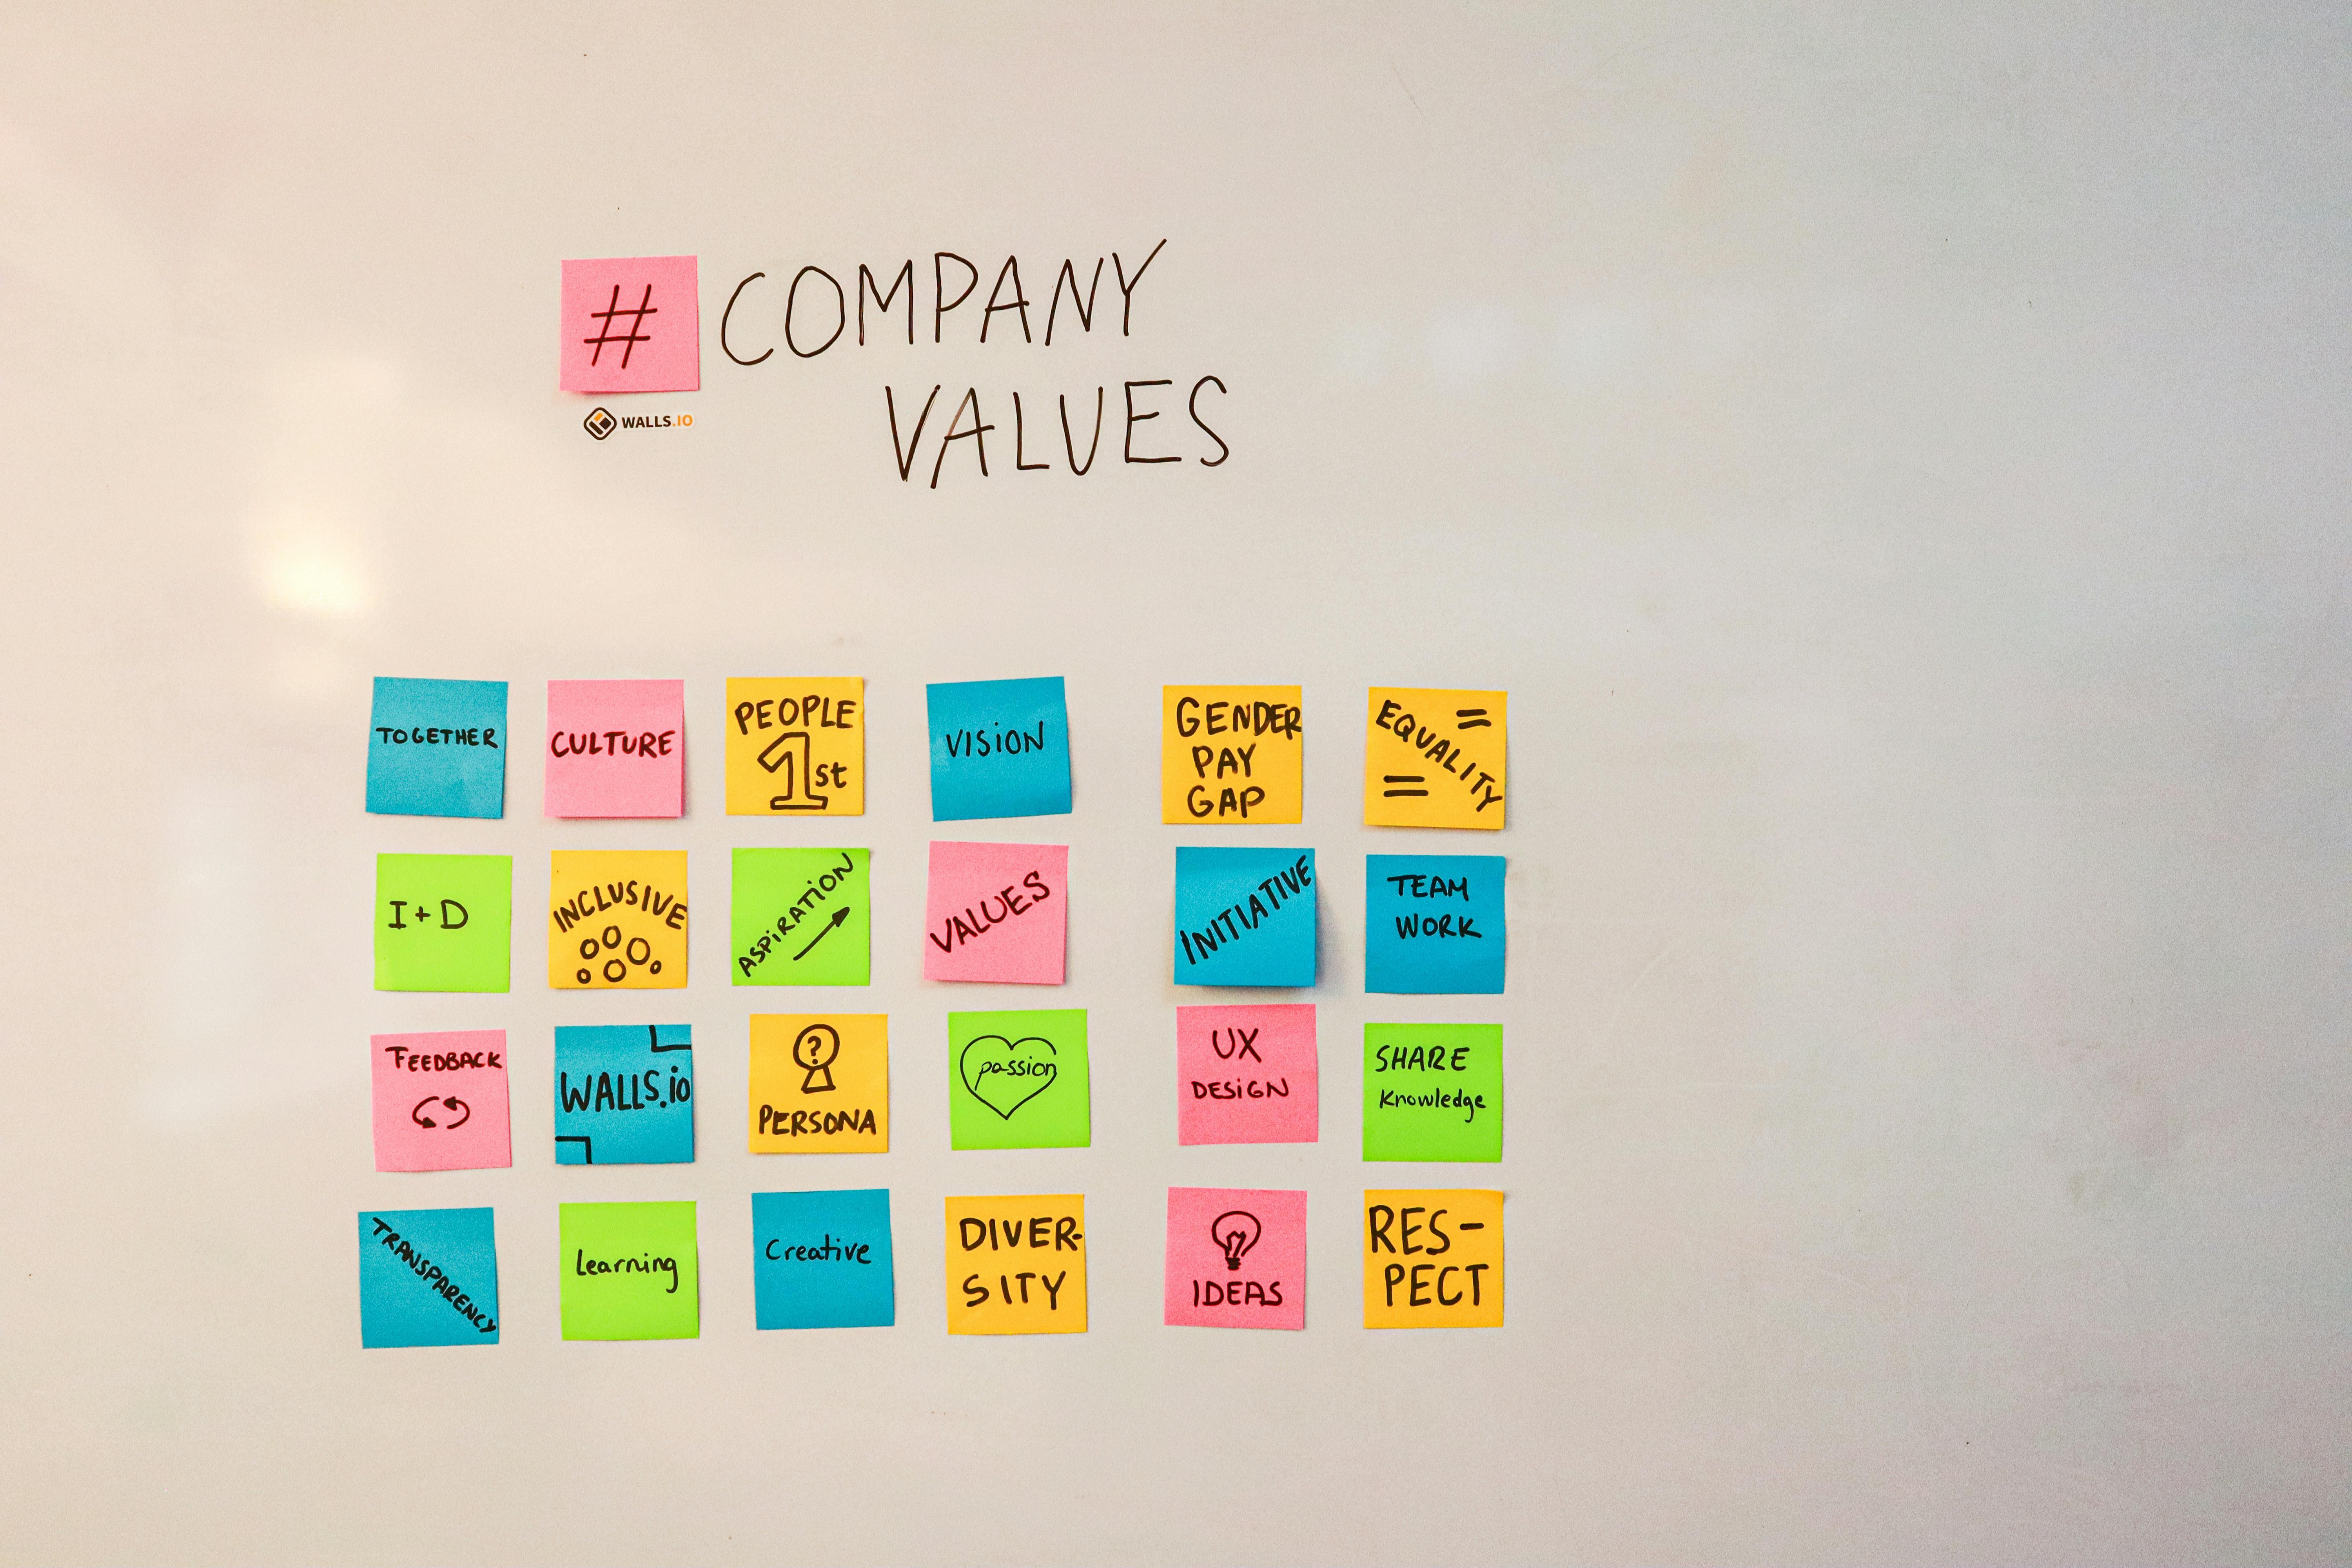 # COMPANY
VALUES
WALLS.IO
TOGETHER
CULTURE
PEOPLE
1st
VISION
GENDER
PAY
GAP
= EQUALITY =
I+D
INCLUSIVE
ASPIRATION
VALUES
INITIATIVE
TEAM
WORK
FEEDBACK
WALLS.io
?
PERSONA
passion
UX
DESIGN
SHARE
Knowledge
TRANSPARENCY
Learning
Creative
DIVER-
SITY
IDEAS
RES-
PECT